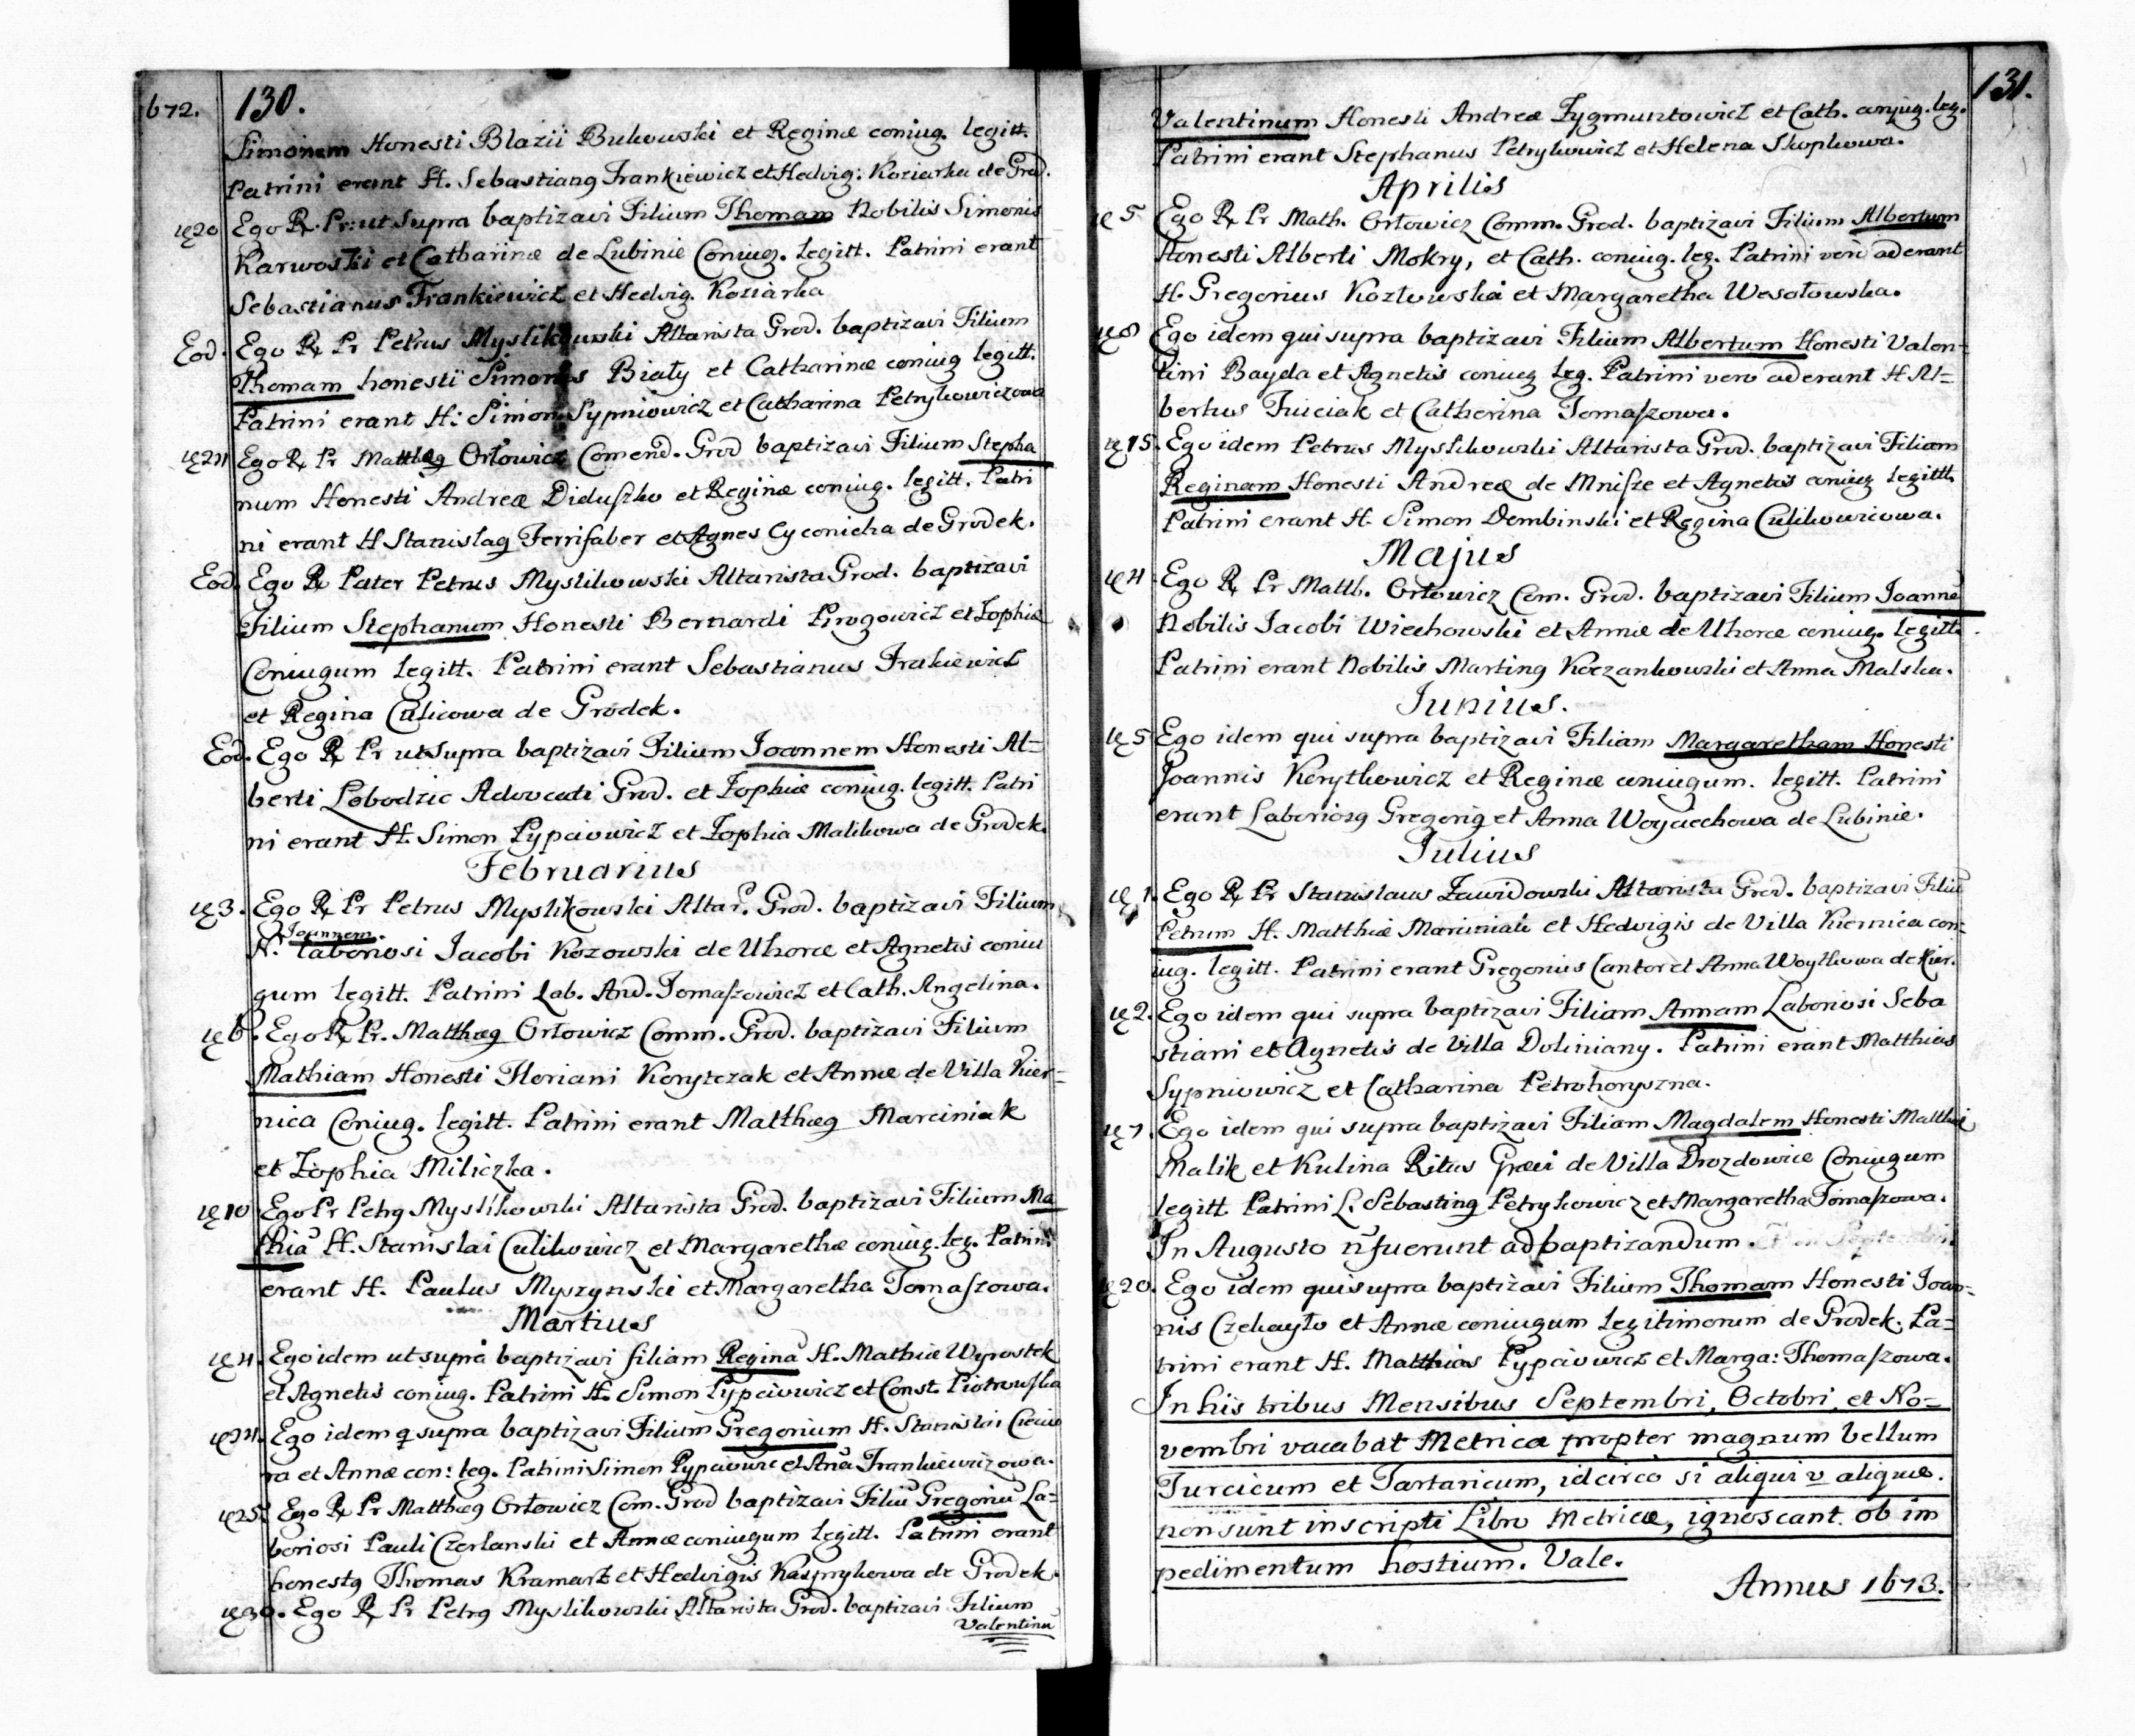 672. 130.
Simonem Honesti Blazii Bukowski et Reginæ coniug. legitt.
Patrini erant H. Sebastiang Frankiewicz et Hedvig: Koziarka de Grod.
20 Ego R. Pr: ut supra baptizavi Filium Thomam Nobilis Simonis
Karwoski et Catharinæ de Lubinie Coniug. legitt. Patrini erant
Sebastianus Frankiewicz et Hedvig. Koziarka
Eod. Ego R Pr Petrus Myslikowski Altarista Grod. baptizavi Filium
Thomam honesti Simonis Biały et Catharinæ coniug legitt.
Patrini erant H: Simon Sypniowicz et Catharina Petrykowiczowa
Ego R Pr Matthæg Orłowicz Comend. Grod baptizavi Filium Stepha
num Honesti Andreæ Dieduszko et Reginæ coniug. legitt. Patri
ni erant H Stanislag Ferrifaber et Agnes Cyconicha de Grodek.
Eod. Ego R Pater Petrus Myslikowski Altarista Grod. baptizavi
Filium Stephanum Honesti Bernardi Pirogowicz et Zophiæ
Coniugum legitt. Patrini erant Sebastianus Frakiewicz
et Regina Culicowa de Grodek.
Eod. Ego R Pr ut supra baptizavi Filium Joannem Honesti Al=
berti Lobodzic Advocati Grod. et Zophiæ coniug. legitt. Patri
ni erant H. Simon Pypciowicz et Zophia Malikowa de Grodek.
Februarius
3. Ego R Pr Petrus Myslikowski Altar. Grod. baptizavi Filium
Joannem.
H. laboriosi Jacobi Kozowski de Uhorce et Agnetis coniu
gum legitt. Patrini Lab. And. Tomaszowicz et Cath. Angelina.
6. Ego R Pr. Matthæg Orłowicz Comm. Grod. baptizavi Filium
Mathiam Honesti Floriani Korytczak et Annæ de Villa Kier=
nica Coniug. legitt. Patrini erant Matthæg Marciniak
et Zophia Miliczka.
10 Ego Pr Petrg Myslikowski Altarista Grod. baptizavi Filium Ma
thiā H. Stanislai Culikowicz et Margarethæ coniug. leg. Patrini
erant H. Paulus Myszynski et Margaretha Tomaszowa.
Martius
4. Ego idem ut supra baptizavi filiam Reginā H. Mathiæ Wyrostek
et Agnetis coniug. Patrini H. Simon Pypciowicz et Const. Piotrowska
24. Ego idem q supra baptizavi Filium Gregorium H. Stanislai
ra et Annæ con: leg. Patrini Simon Pypciowic et Anā Frankiewiczowa.
25 Ego R Pr Matthæg Orłowicz Com. Grod baptizavi Filiū Gregoriū La=
boriosi Pauli Czerlanski et Annæ coniugum legitt. Patrini erant
honestg Thomas Kramarz et Hedvigis Kasprykowa de Grodek.
30. Ego R Pr Petrg Myslikowski Altarista Grod. baptizavi Filium
Valentinū
131.
Valentinum Honesti Andreæ Zygmuntowicz et Cath. coniug. leg.
Patrini erant Stephanus Petrykowicz et Helena Skopkowa.
Aprilis
5 Ego R Pr Math. Orłowicz Comm. Grod. baptizavi Filium Albertum
Honesti Alberti Mokry, et Cath. coniug. leg. Patrini vero aderant
H. Gregorius Kozłowski et Margaretha Wesołowska.
8 Ego idem qui supra baptizavi Filium Albertum Honesti Valen=
tini Bayda et Agnetis coniug leg. Patrini vero aderant H Al=
bertus Furciak et Catherina Tomaszowa.
15. Ego idem Petrus Myslikowski Altarista Grod. baptizavi Filiam
Reginam Honesti Andreæ de Mnisze et Agnetis coniug legitt.
Patrini erant H. Simon Dembinski et Regina Culikowicowa.
Majus
4 Ego R Pr Matth. Orłowicz Com. Grod. baptizavi Filium Joannē
Nobilis Jacobi Wiechowski et Annæ de Uhorce coniug. legitt.
Patrini erant Nobilis Marting Korzankowski et Anna Malska.
Junius.
5 Ego idem qui supra baptizavi Filiam Margaretham Honesti
Joannis Korytkowicz et Reginæ coniugum. legitt. Patrini
erant Laboriosg Gregorig et Anna Woyciechowa de Lubinie.
Julius
1. Ego R Pr Stanislaus Zawidowski Altarista Grod. baptizavi Filiū
Petrum H. Matthiæ Marciniak et Hedvigis de Villa Kiernica con=
iug. legitt. Patrini erant Gregorius Cantor et Anna Woytkowa de Kier.
2. Ego idem qui supra baptizavi Filiam Annam Laboriosi Seba
stiani et Agnetis de Villa Doliniany. Patrini erant Matthias
Sypniowicz et Catharina Petrohoryszna.
7. Ego idem qui supra baptizavi Filiam Magdalem Honesti Matthæi
Malik et Kulina Ritus Græci de Villa Drozdowice Coniugum
legitt. Patrini L. Sebasting Petrykowicz et Margaretha Tomaszowa.
In Augusto n̄ fuerunt ad baptizandum.
20. Ego idem qui supra baptizavi Filium Thomam Honesti Joan=
nis Czekayło et Annæ coniugum legitimorum de Grodek. Pa=
trini erant H. Matthias Pypciowicz et Marga: Thomaszowa.
In his tribus Mensibus Septembri, Octobri, et No=
vembri vacabat Metrica propter magnum bellum
Turcicum et Tartaricum, idcircò si aliqui v aliquæ.
non sunt inscripti Libro Metricæ, ignoscant ob im
pedimentum hostium. Vale.
Annus 1673.